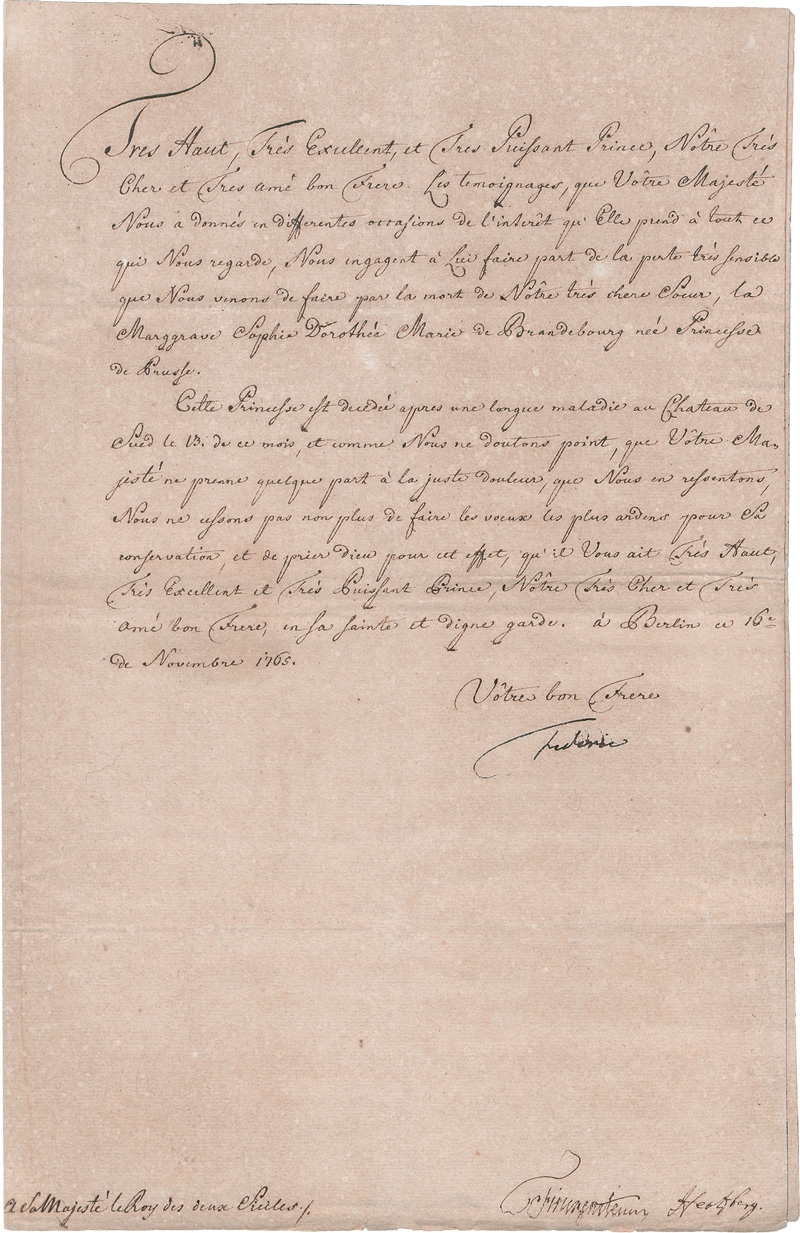 Tres Haut, Trés Excellent, et Tres Puissant Prince, Nôtre Trés
Cher et Tres amé bon Frere. Les temoignages, que Vôtre Majesté
Nous a donnés en differentes occasions de l'interêt qu'Elle prend à tout ce
qui Nous regarde, Nous engagent à Lui faire part de la perte trés sensible
que Nous venons de faire par la mort de Nôtre trés chere Soeur, la
Marggrave Sophie Dorothée Marie de Brandebourg neé Princesse
de Prusse.
Cette Princesse est decedée apres une longue maladie au Chateau de
Sued le 13. de ce mois, et comme Nous ne doutons point, que Vôtre Ma-
jesté ne prenne quelque part à la juste douleur, que Nous en ressentons,
Nous ne cessons pas non plus de faire les voeux les plus ardens pour Sa
conservation, et de prier Dieu pour cet effet, qu'il Vous ait Trés Haut,
Trés Excellent et Trés Puissant Prince, Nôtre Trés Cher et Trés
Amé bon Frere, en sa sainte et digne garde. à Berlin ce 16e
de Novembre 1765.
Vôtre bon Frere
Federic
A Sa Majesté le Roy des deux Siciles ./.
Finckenstein Hertzberg.